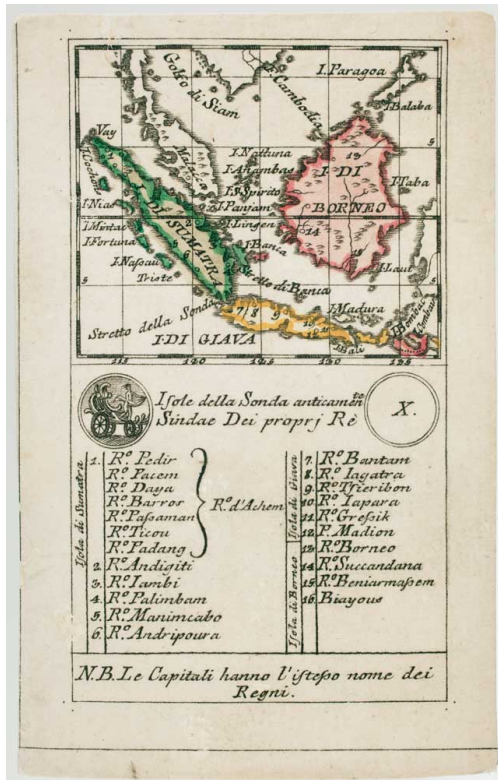 Golfo di Siam
Cambodia
I. Paragoa
I. Balaba
Vay
I. Cochom
Malacca
I. Nattuna
I. Anambas
I. S. Spirito
I. Panjam
I. Lingen
I. Banca
I. DI BORNEO
13
14
15
I. Taba
I. Nias
I. Mintac
I. Fortuna
I. Nassau
Triste
DI SUMATRA
Stretto di Banca
I. Laut
I. Madura
Stretto della Sonda
I. DI GIAVA
7
8
9
I. Bali
115
140
145
130
135
Isole della Sonda anticamente
Sindae Dei proprj Rè
X.
Isola di Sumatra
1. R.º Pedir
R.º Pacem
R.º Daya
R.º Barros
R.º Passaman
R.º Ticou
R.º Padang
R.º d'Achem
2. R.º Andigiti
3. R.º Iambi
4. R.º Palimbam
5. R.º Manimcabo
6. R.º Andripoura
Isola di Giava
7. R.º Bantam
8. R.º Iagatra
9. R.º Tsieribon
10. R.º Iapara
11. R.º Gressik
12. P. Madion
Isola di Borneo
13. R.º Borneo
14. R.º Succandana
15. R.º Beniarmassem
16. Biayous
N.B. Le Capitali hanno l'istesso nome dei
Regni.